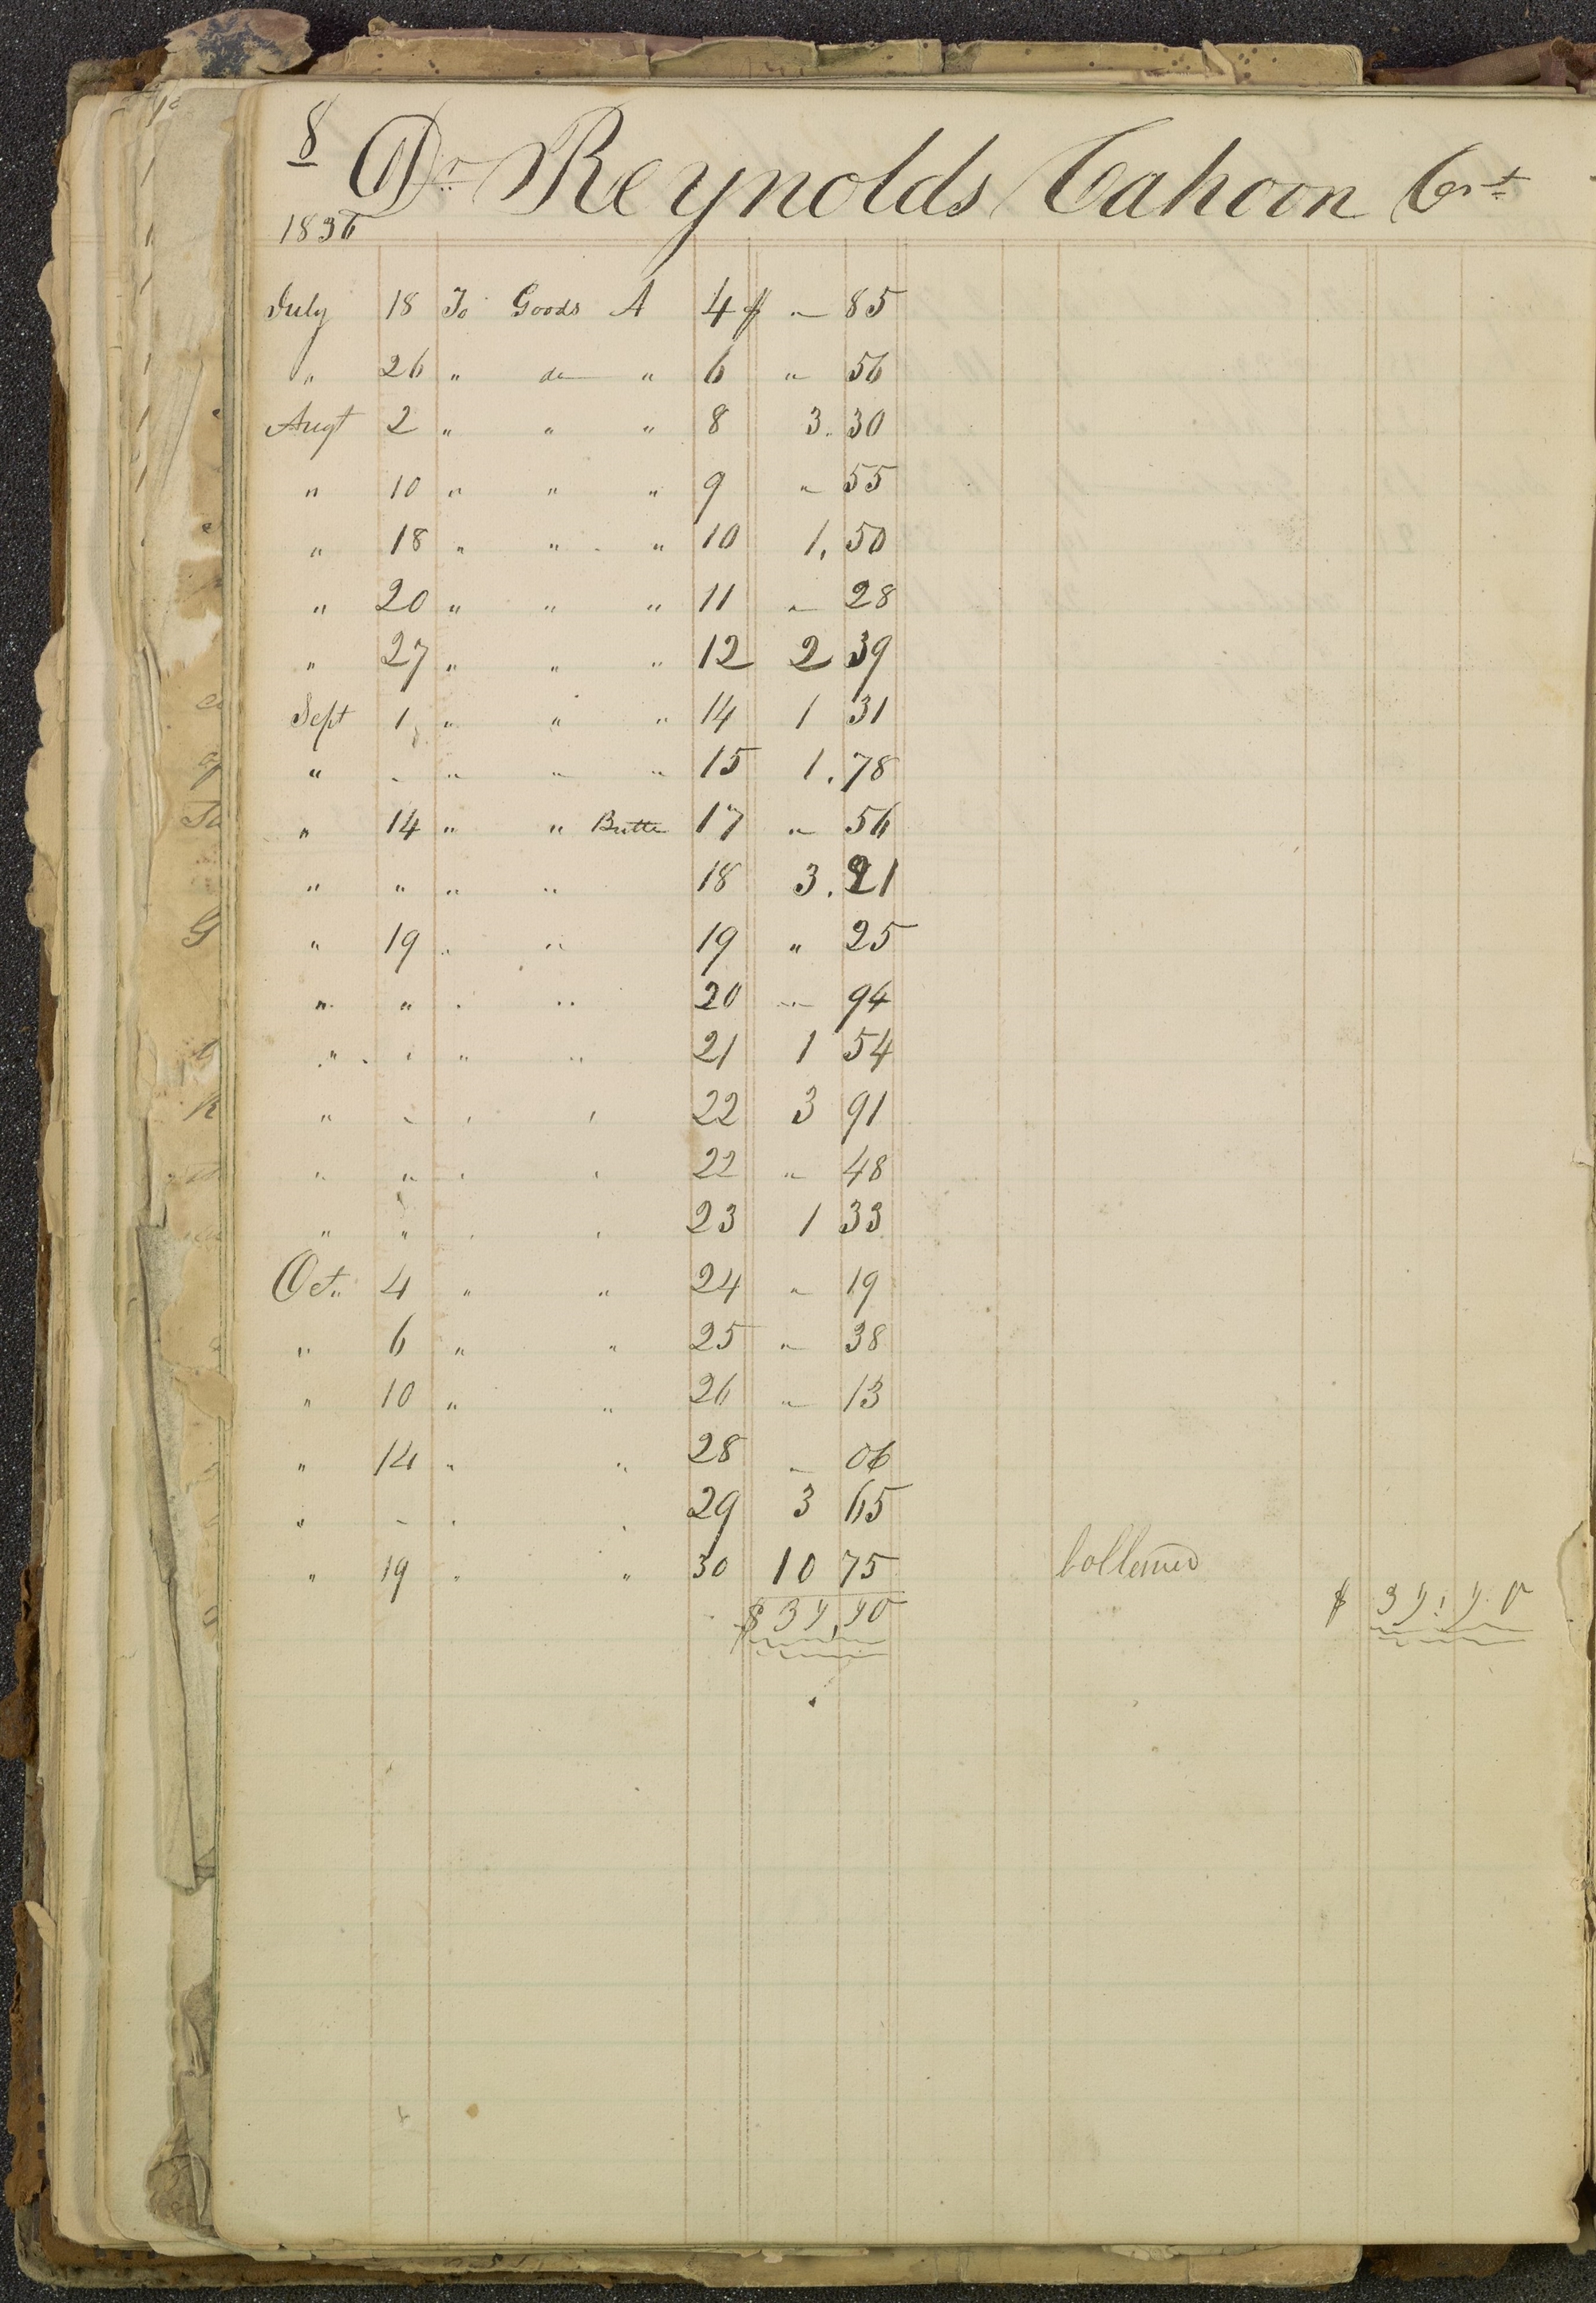 8 Dr Reynolds Cahoon Crt
1836
July 18 To Goods A 4 $ " 85
" 26 " do " 6 " 56
Augt 2 " " " 8 3.30
" 10 " " " 9 " 55
" 18 " " " 10 1,50
" 20 " " " 11 " 28
" 27 " " " 12 2 39
Sept 1 " " " 14 1 31
" " " " " 15 1.78
" 14 " " Butte 17 " 56
" " " " 18 3.21
" 19 " " 19 " 25
" " " " 20 " 94
" " " " 21 1 54
" " " " 22 3 91
" " " " 22 " 48
" " " " 23 1 33
Oct. 4 " " 24 " 19
" 6 " " 25 " 38
" 10 " " 26 " 13
" 14 " " 28 " 06
" " " " 29 3 65
" 19 " " 30 10 75
$ 39,90 $ 39.90